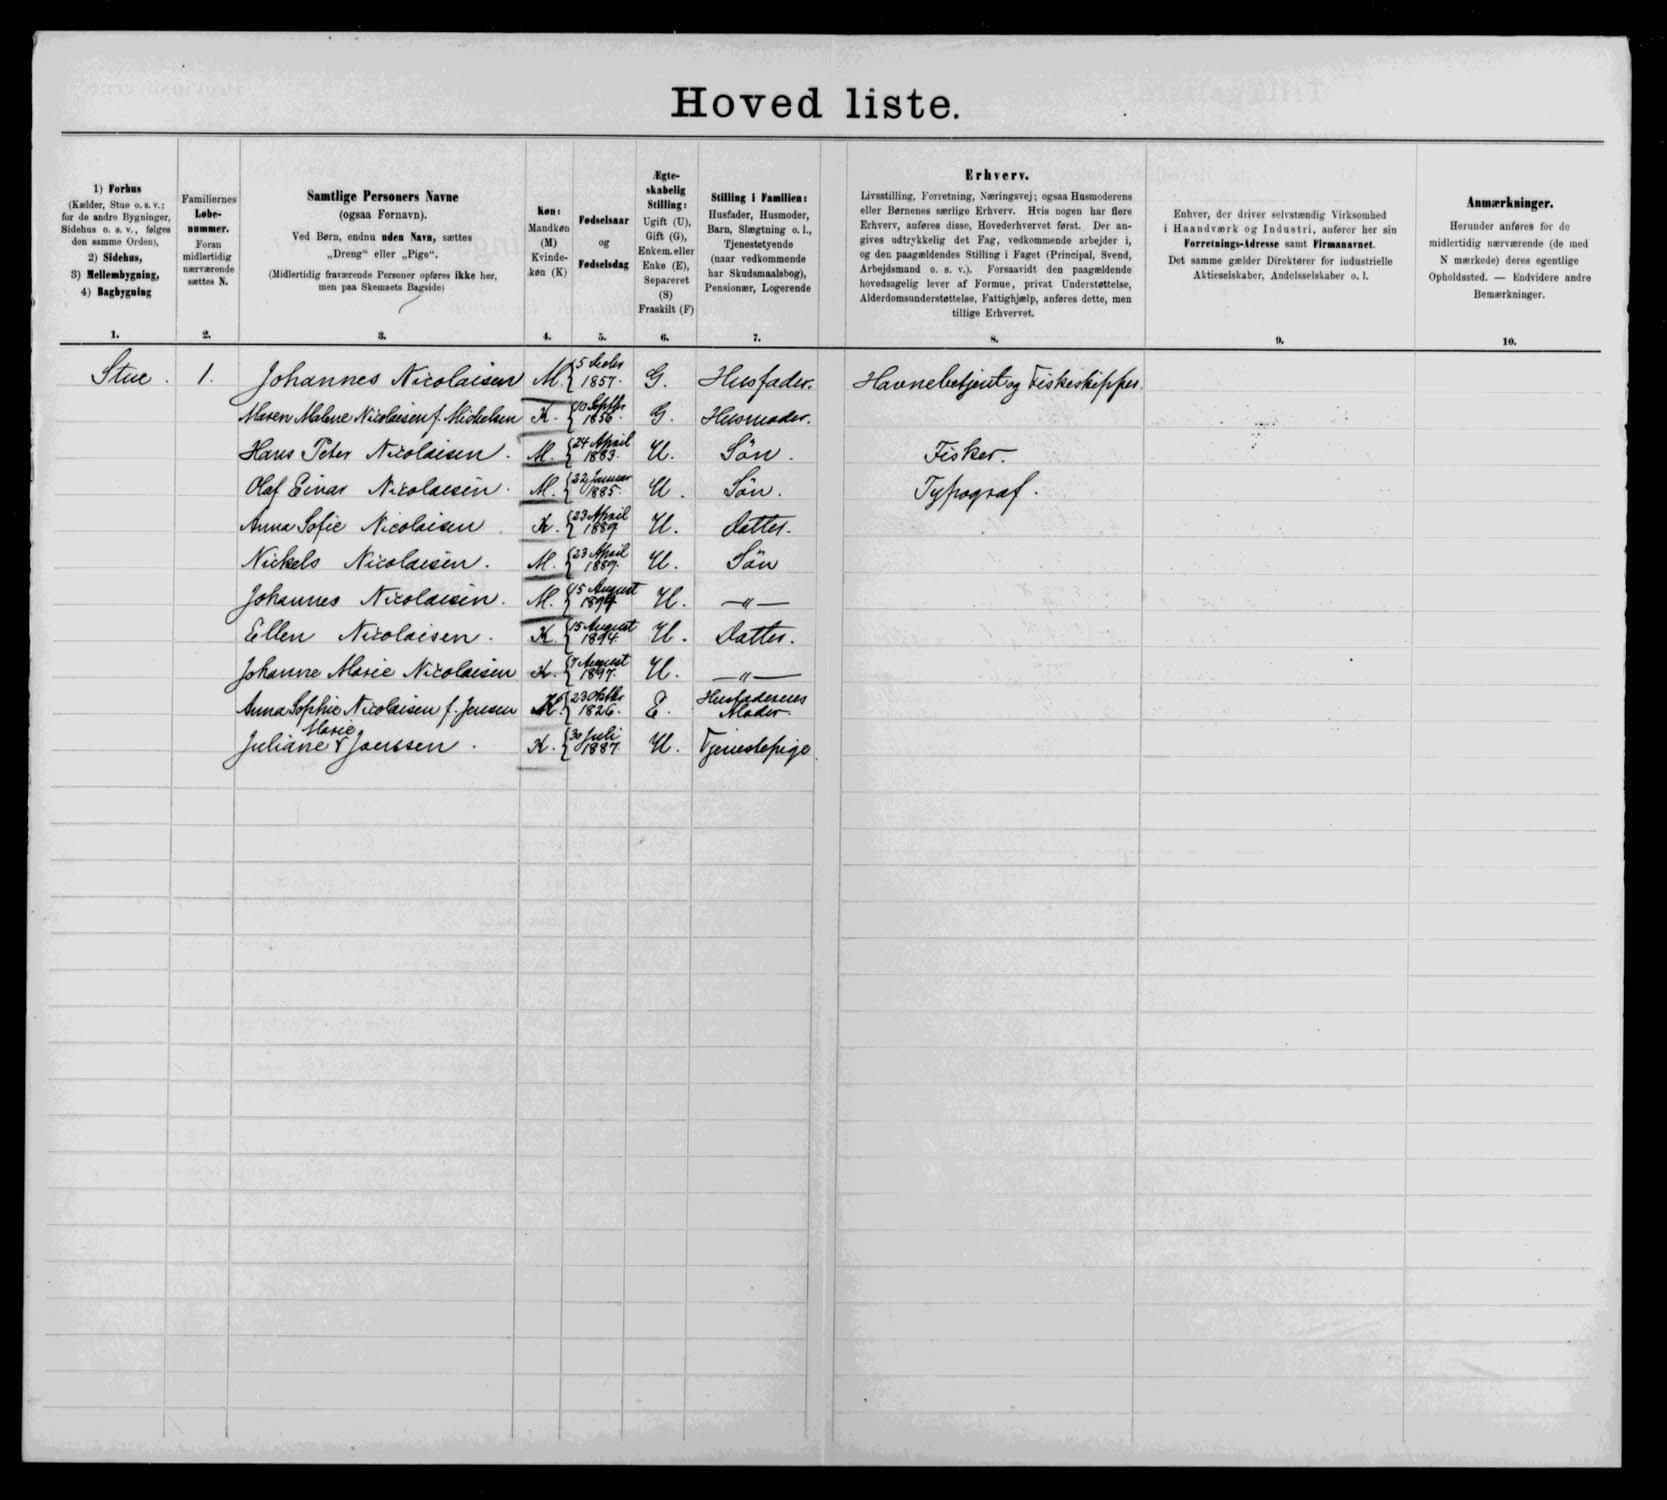 Hoved liste.
1) Forhus
(Kælder, Stue o. s. v.;
for de andre Bygninger,
Sidehus o. s. v., følges
den samme Orden),
2) Sidehus,
3) Mellembygning,
4) Bagbygning
1.
Familiernes
Løbe-
nummer.
Foran
midlertidig
nærværende
sættes N.
2.
Samtlige Personers Navne
(ogsaa Fornavn).
Ved Børn, endnu uden Navn, sættes
„Dreng“ eller „Pige“.
(Midlertidig fraværende Personer opføres ikke her,
men paa Skemaets Bagside)
3.
Køn:
Mandkøn
(M)
Kvinde-
køn (K)
4.
Fødselsaar
og
Fødselsdag
5.
Ægte-
skabelig
Stilling:
Ugift (U),
Gift (G),
Enkem. eller
Enke (E),
Separeret
(S)
Fraskilt (F)
6.
Stilling i Familien:
Husfader, Husmoder,
Barn, Slægtning o. l.,
Tjenestetyende
(naar vedkommende
har Skudsmaalsbog),
Pensionær, Logerende
7.
Erhverv.
Livsstilling, Forretning, Næringsvej; ogsaa Husmoderens
eller Børnenes særlige Erhverv. Hvis nogen har flere
Erhverv, anføres disse, Hovederhvervet først. Der an-
gives udtrykkelig det Fag, vedkommende arbejder i,
og den paagældendes Stilling i Faget (Principal, Svend,
Arbejdsmand o. s. v.). Forsaavidt den paagældende
hovedsagelig lever af Formue, privat Understøttelse,
Alderdomsunderstøttelse, Fattighjælp, anføres dette, men
tillige Erhvervet.
8.
Enhver, der driver selvstændig Virksomhed
i Haandværk og Industri, anfører her sin
Forretnings-Adresse samt Firmanavnet.
Det samme gælder Direktører for industrielle
Aktieselskaber, Andelsselskaber o. l.
9.
Anmærkninger.
Herunder anføres for de
midlertidig nærværende (de med
N mærkede) deres egentlige
Opholdssted. — Endvidere andre
Bemærkninger.
10.
Stue. 1. Johannes Nicolaisen M. 5 1857. G. Husfader. Havnebetjent og Fiskeskipper.
Maren Malene Nicolaisen f. Mickelsen K. 10 Septbr 1856. G. Husmoder.
Hans Peter Nicolaisen. M. 24 April 1883. U. Sön. Fisker.
Olaf Einar Nicolaisen. M. 22 Januar 1885. U. Sön. Typograf.
Anna Sofie Nicolaisen K. 23 April 1889 U. Datter.
Nickels Nicolaisen. M. 23 April 1889. U. Sön
Johannes Nicolaisen. M. 15 August 1894 U. —"—
Ellen Nicolaisen. K. 15 August 1894. U. Datter.
Johanne Marie Nicolaisen K. 7 August 1897. U. —"—
Anna Sophie Nicolaisen f. Jensen K. 23 Oktbr 1826. E. Husfaderens Moder.
Juliane Marie Joenssen. K. 30 Juli 1887 U. Tjenestepige.